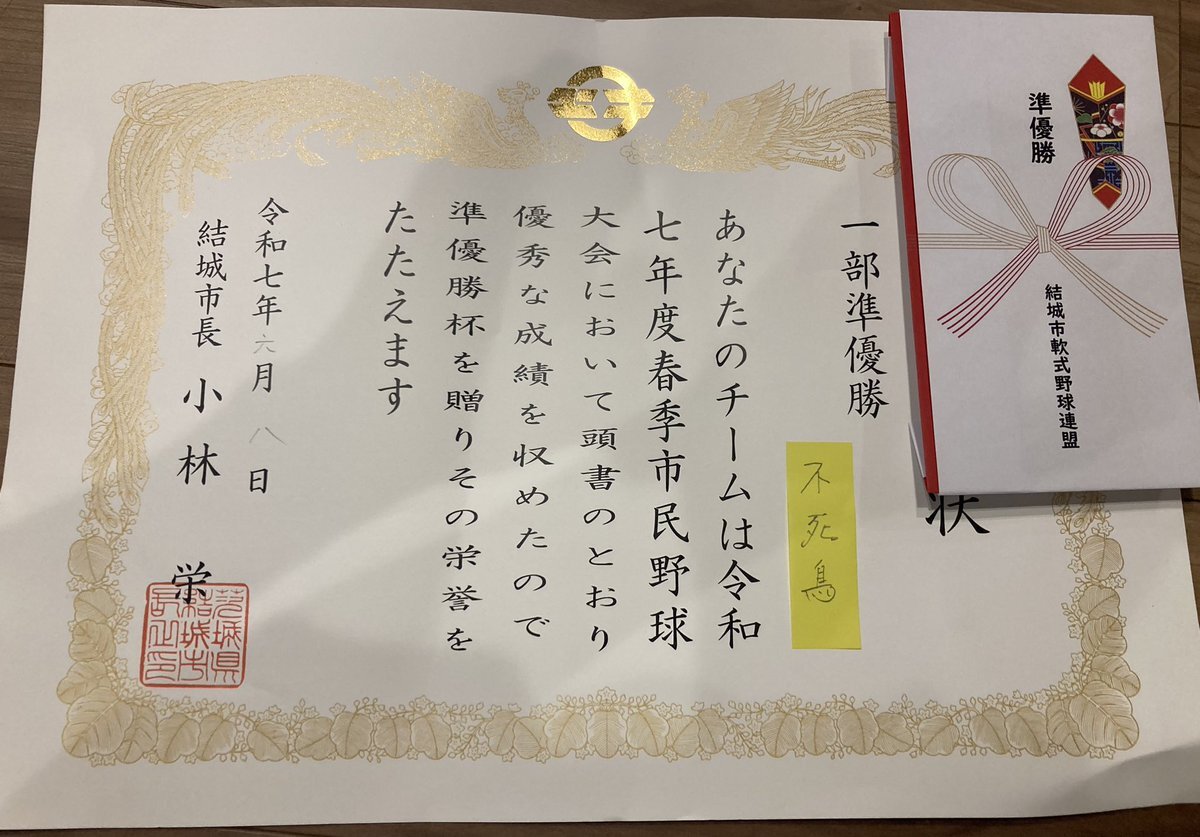 準優勝
結城市軟式野球連盟
状
一部準優勝
不死鳥
あなたのチームは令和
七年度春季市民野球
大会において頭書のとおり
優秀な成績を収めたので
準優勝杯を贈りその栄誉を
たたえます
令和七年六月八日
結城市長 小林 栄
茨城県
結城市
長之印